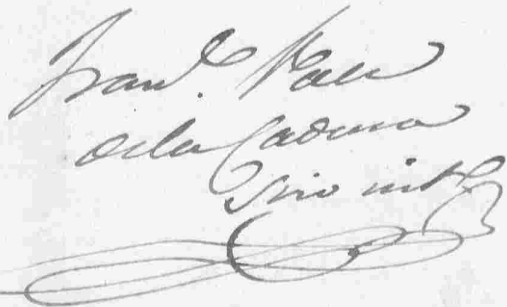 Fran.co Paez
dela Cadena
Srio int.o